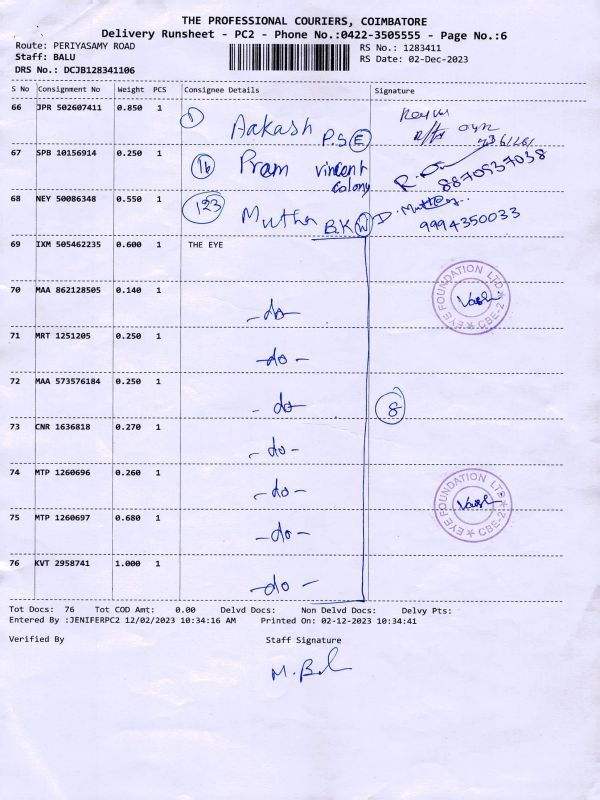 THE PROFESSIONAL COURIERS, COIMBATORE
Delivery Runsheet - PC2 - Phone No.:0422-3505555 - Page No.:6
Route: PERIYASAMY ROAD
RS No.: 1283411
Staff: BALU
RS Date: 02-Dec-2023
DRS No.: DCJB128341106
S No Consignment No Weight PCS Consignee Details Signature
66 JPR 502607411 0.850 1
Aakash P.S E
67 SPB 10156914 0.250 1 16 Pram vincent colony
8870537038
68 NEY 50086348 0.550 1 123 Muthu B.K W D. Muthu
9994350033
69 IXM 505462235 0.600 1 THE EYE
EYE FOUNDATION LTD. CBE-2
70 MAA 862128505 0.140 1 -do-
71 MRT 1251205 0.250 1 -do-
72 MAA 573576184 0.250 1 -do- 8
73 CNR 1636818 0.270 1 -do-
74 MTP 1260696 0.260 1 -do-
EYE FOUNDATION LTD. CBE-2
75 MTP 1260697 0.680 1 -do-
76 KVT 2958741 1.000 1 -do-
Tot Docs: 76 Tot COD Amt: 0.00 Delvd Docs: Non Delvd Docs: Delvy Pts:
Entered By :JENIFERPC2 12/02/2023 10:34:16 AM Printed On: 02-12-2023 10:34:41
Verified By Staff Signature